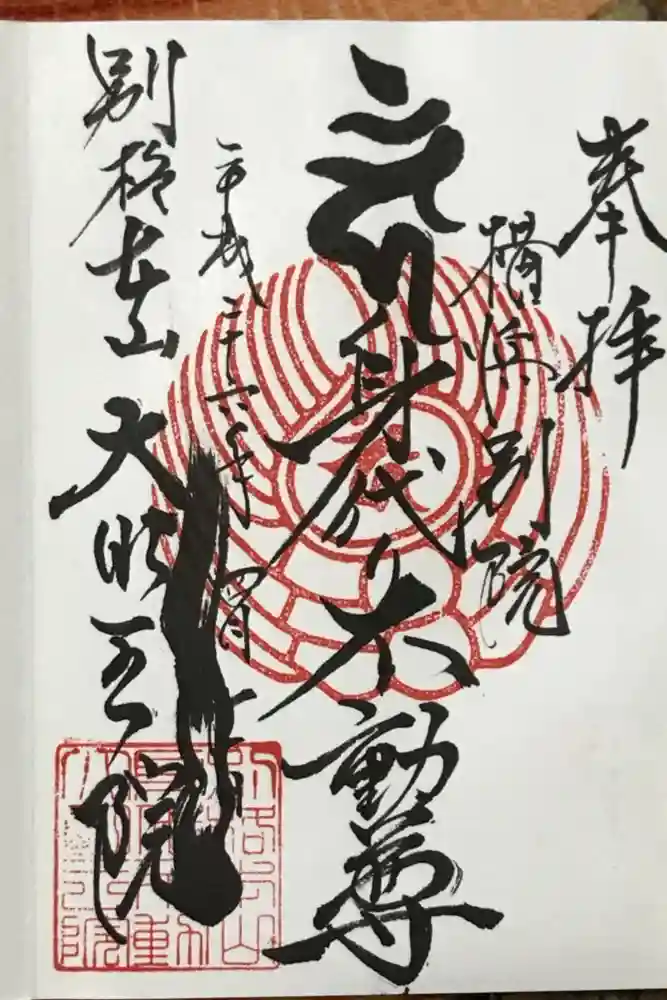 奉拝
横浜別院
身代不動尊
平成二十六年四月
別格本山
大明王院